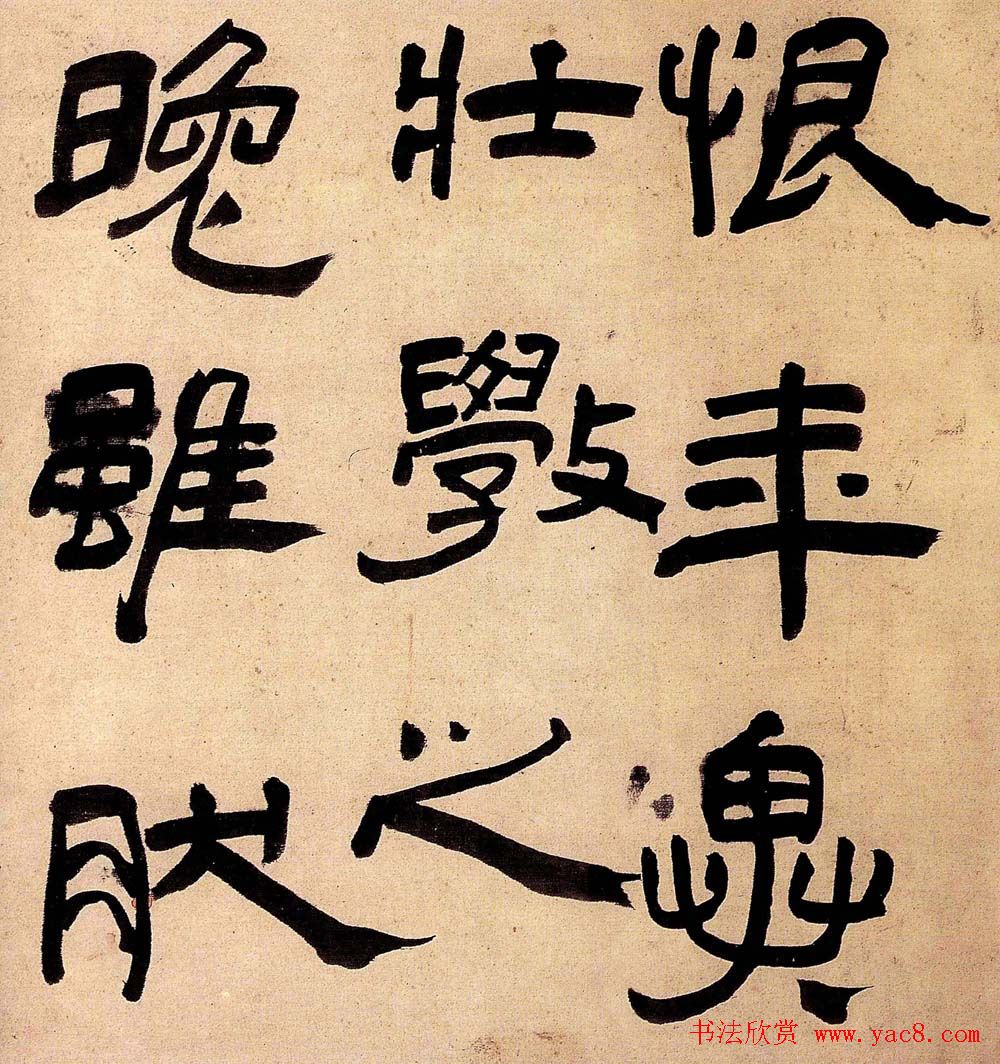 恨年
壯斆之
晚雖肰
书法欣赏 www.yac8.com